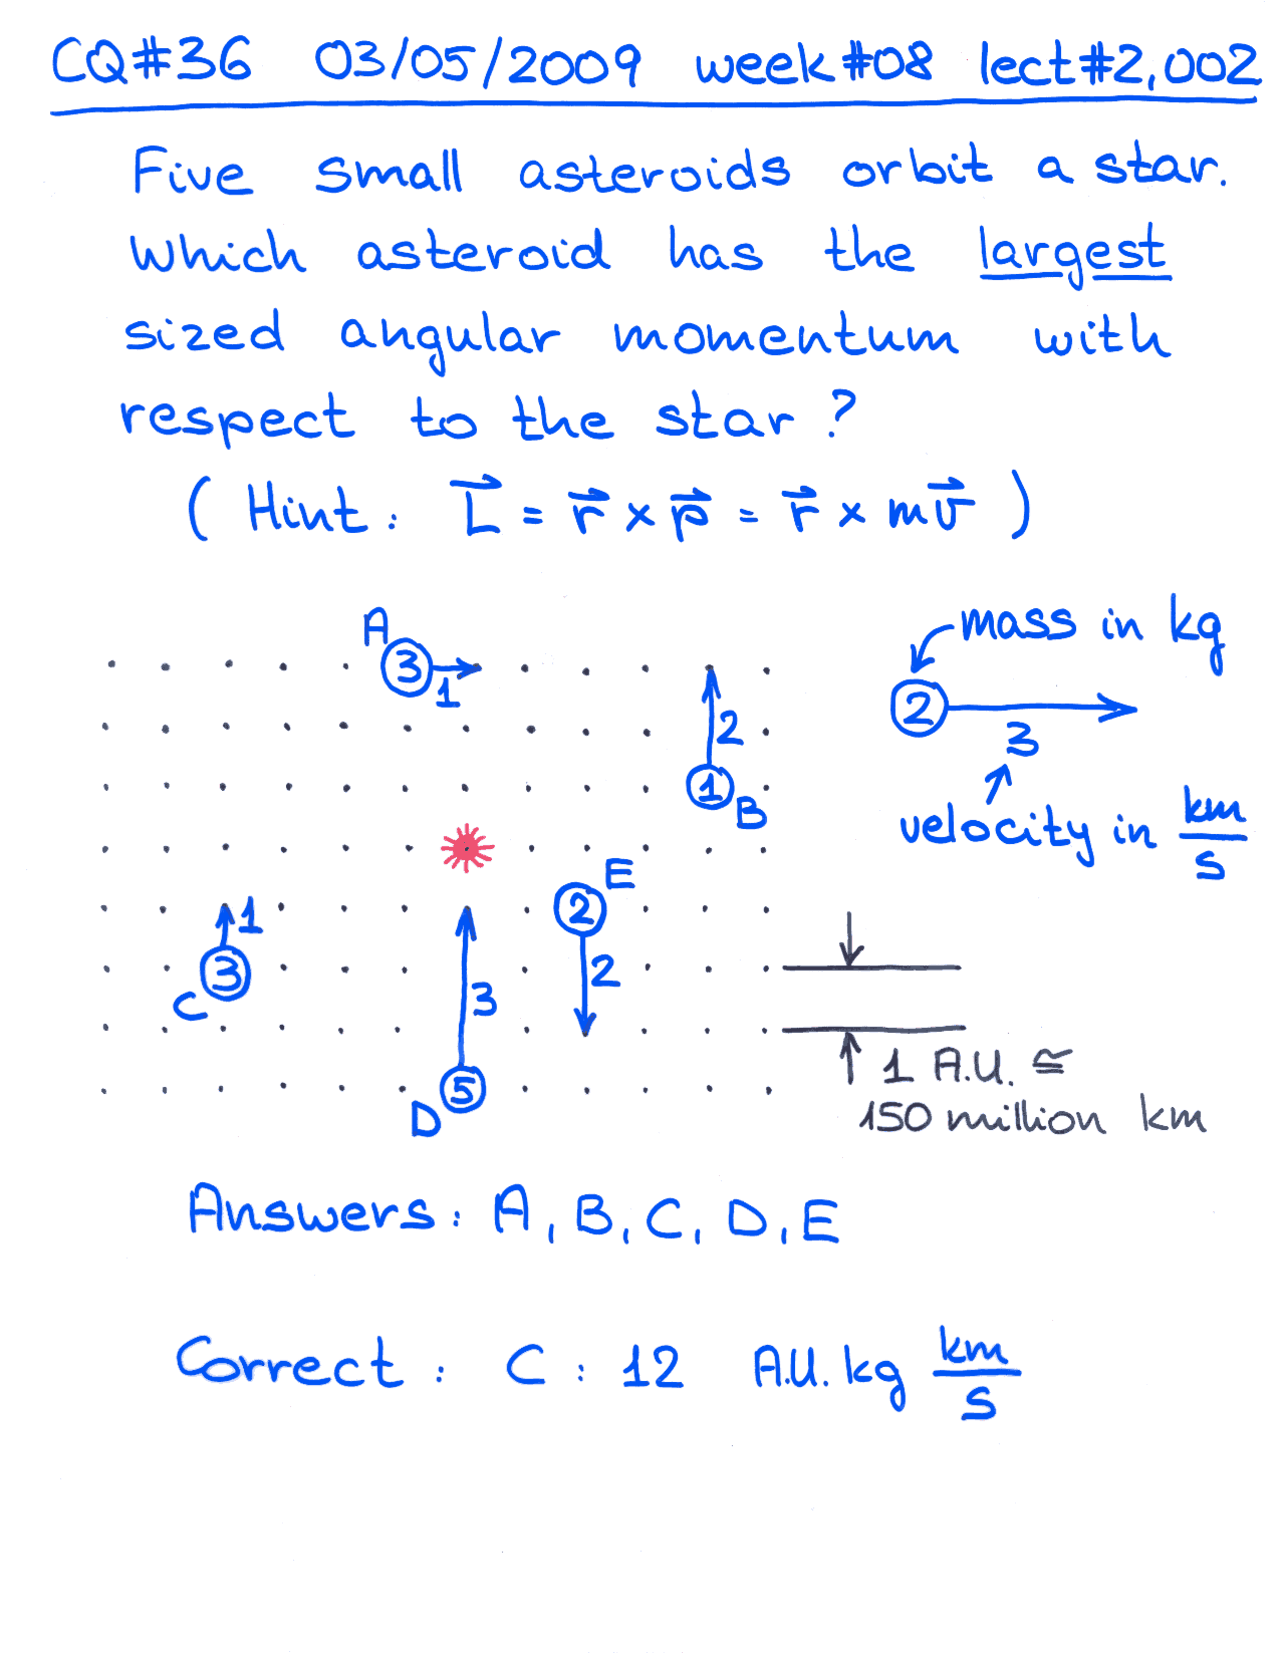 CQ#36 03/05/2009 week#08 lect#2,002
Five small asteroids orbit a star.
Which asteroid has the largest
sized angular momentum with
respect to the star?
(Hint: L⃗ = r⃗ × p⃗ = r⃗ × mv⃗)
A
3
1
2
1
B
mass in kg
2
3
velocity in km/s
E
2
2
1
3
C
3
5
D
1 A.U. ≅
150 million km
Answers: A, B, C, D, E
Correct: C: 12 A.U. kg km/s